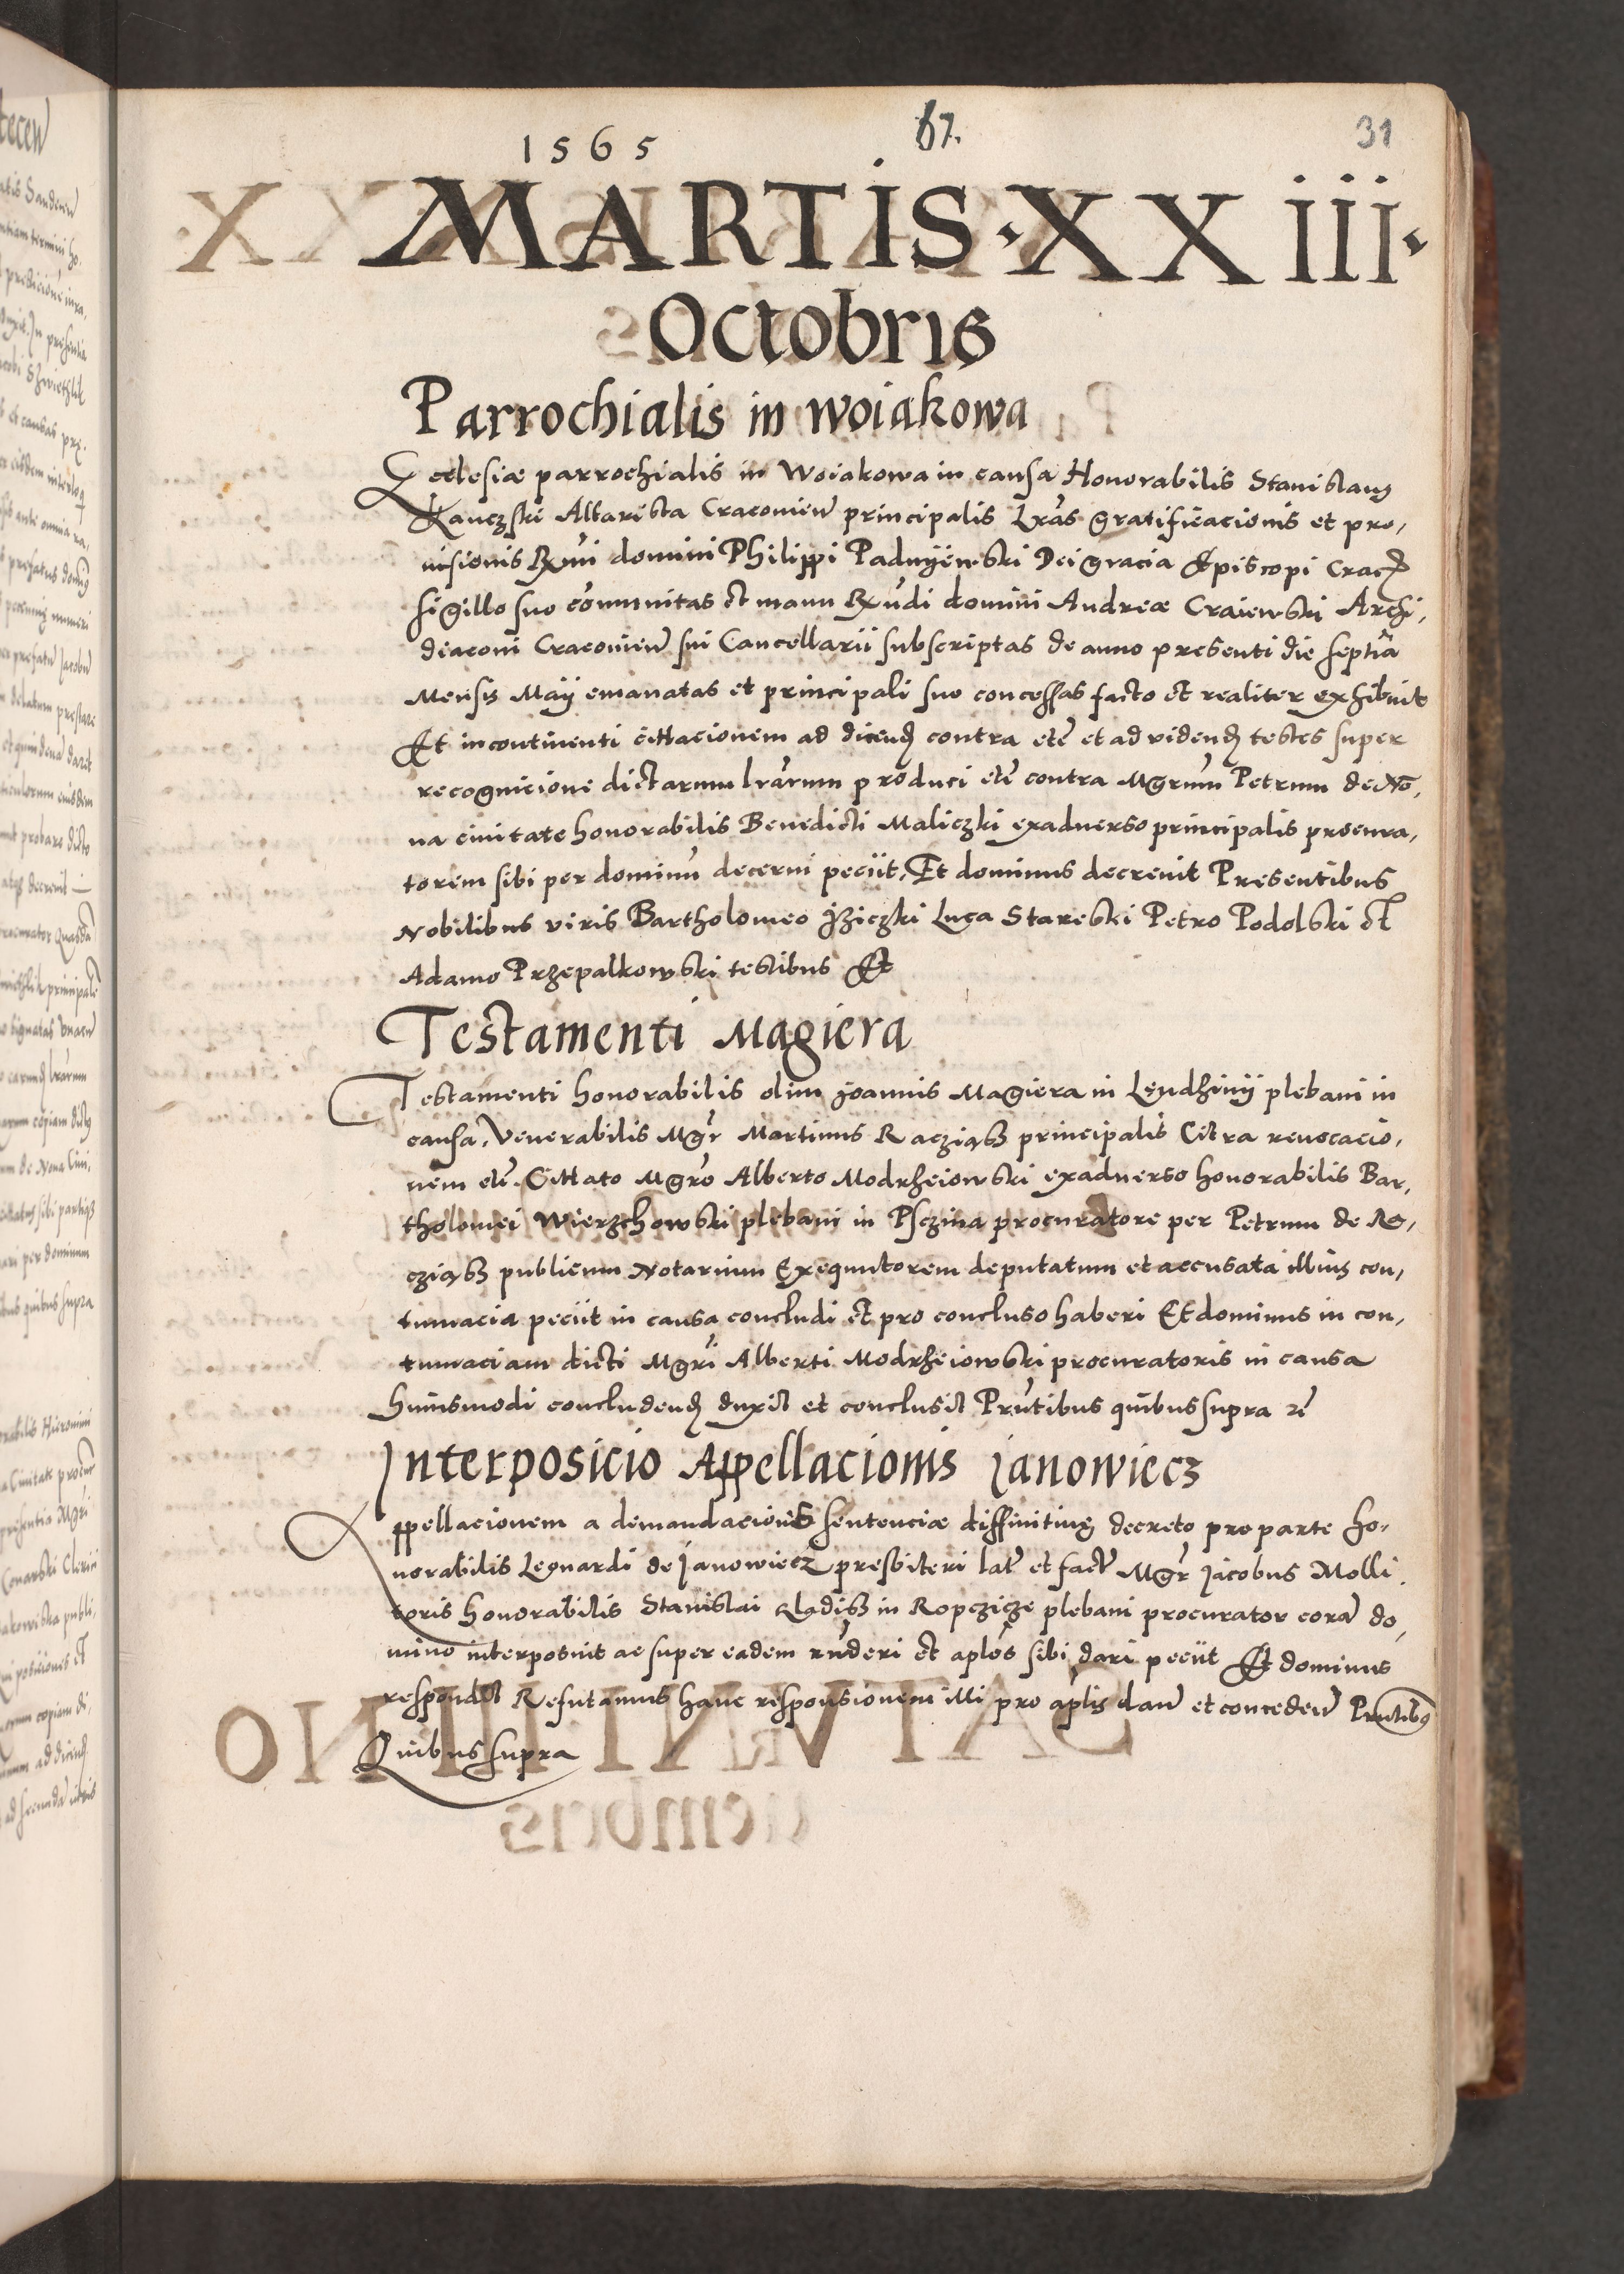 1565 67. 31
MARTIS · XXIII ·
Octobris
Parrochialis in Woiakowa
Ecclesiæ parrochialis in Woiakowa in causa Honorabilis Stanislaus
Kanczski Altarista Cracovieñ principalis Lras gratificacionis et pro,
visionis Rxmi domini Philippi Padnyewski Dei gracia Episcopi Crac
sigillo suo cõmunitas et manu Rx̃di domini Andreæ Craiewski Archi,
diaconi Cracovieñ sui Cancellarii subscriptas de anno presenti die septĩa
Mensis Maij emanatas et principali suo concessas facto et realiter exhibuit
Et incontinenti cittacionem ad dicend contra etc̃ et ad videnđ testes super
recognicione dictarum lrarum produci etc̃ contra Mgrum Petrum de No,
va civitate honorabilis Benedicti Maliczki exadverso principalis procura,
torem sibi per dominũ decerni peciit. Et dominus decrevit Presentibus
Nobilibus viris Bartholomeo Jziczki Luca Stareski Petro Podolski et
Adamo Przepalkowski testibus Et
Testamenti Magiera
Testamenti honorabilis olim Joannis Magiera in Lendzinij plebani in
causa, Venerabilis Mgr Martinus Racziąsz principalis Citra revocacio,
nem etc̃. Cittato Mgro Alberto Modrzeiowski exadverso honorabilis Bar,
tholomei Wierzchowski plebani in Psczina procuratore per Petrum de Ra,
cziąsz publicum Notarium Exequutorem deputatum et accusata illius con,
tumacia peciit in causa concludi et pro concluso haberi Et dominus in con,
tumaciam dicti Mgri Alberti Modrzeiowski procuratoris in causa
huiusmodi concludenđ duxit et conclusit Prñtibus quibus supra
Interposicio Appellacionis Janowiecz
Appellacionem a demandacionis sentenciæ diffinitivę decreto pro parte ho,
norabilis Leonardi de Janowiecz presbiteri lať et facť Mgr Jacobus Molli
toris honorabilis Stanislai Gladisz in Ropczicze plebani procurator corã do,
mino interposuit ac super eadem rñderi et aplos sibi dari peciit Et dominus
respondit Refutamus hanc responsionem illi pro aplis dañ et concedeñ Prñtibus
Quibus supra